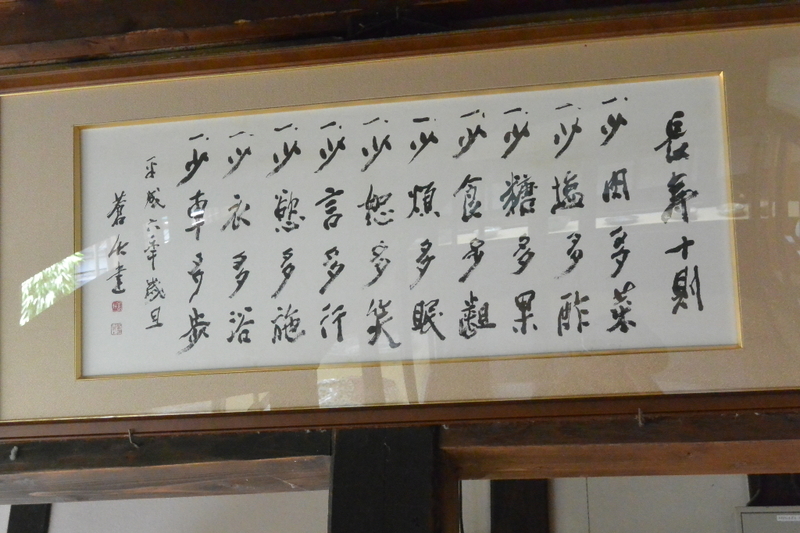 長寿十則
一少肉多菜
一少塩多酢
一少糖多果
一少食多齟
一少煩多眠
一少怒多笑
一少言多行
一少慾多施
一少衣多浴
一少車多歩
平成六年歳旦
蒼 書